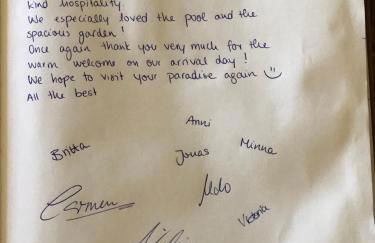 kind hospitality.
We especially loved the pool and the
spacious garden!
Once again thank you very much for the
warm welcome on our arrival day!
We hope to visit your paradise again
All the best
Anni
Britta
Jonas
Minna
Carmen
Udo
Viktoria